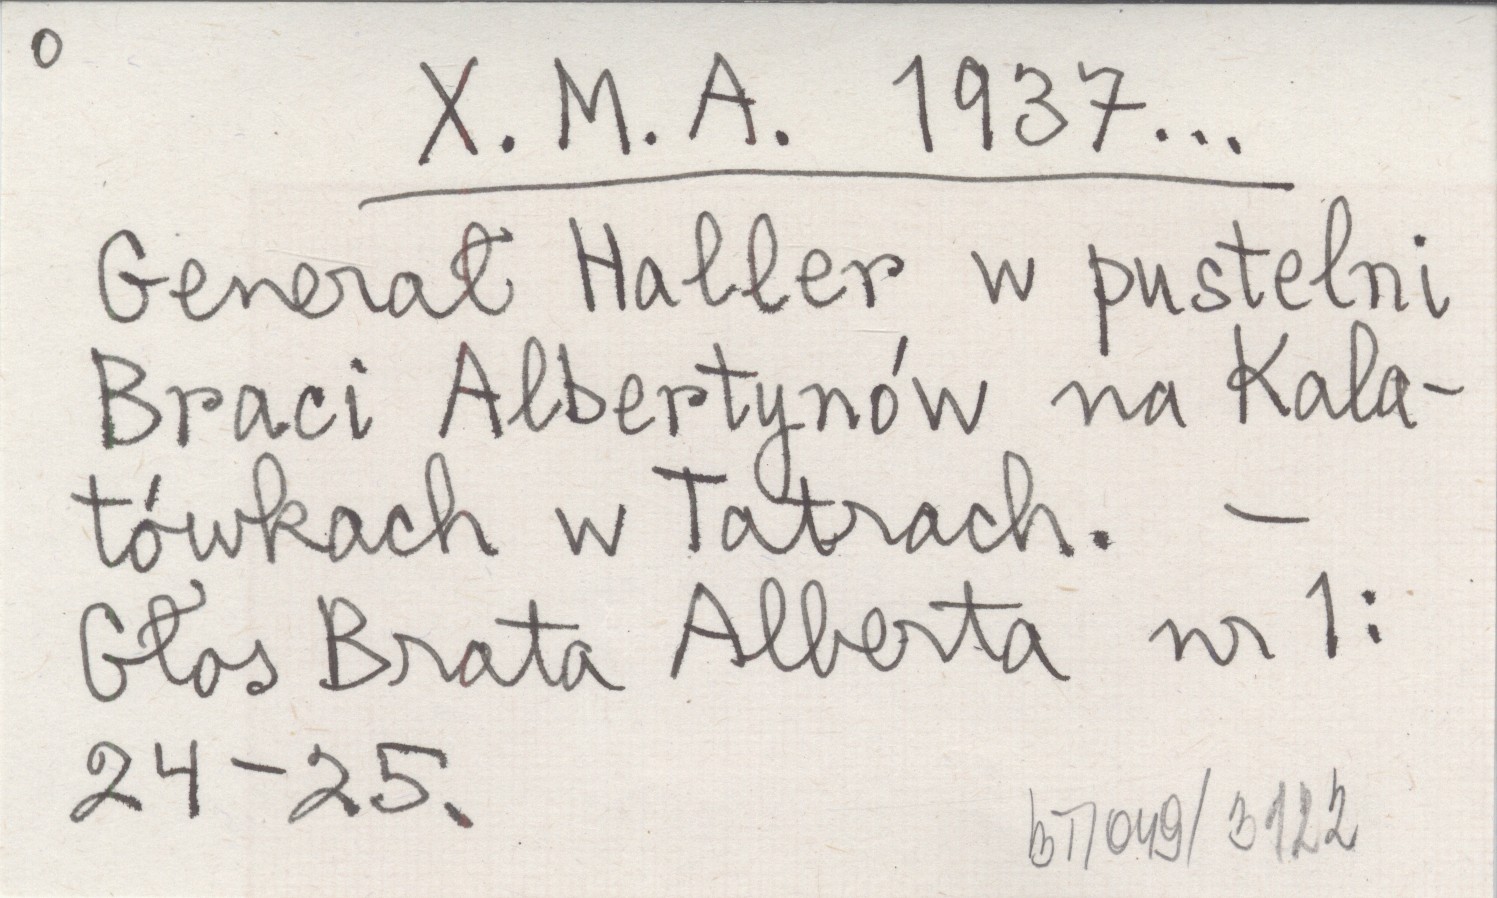 0
X. M. A. 1937...
Generał Haller w pustelni
Braci Albertynów na Kala-
tówkach w Tatrach. —
Głos Brata Alberta nr 1:
24-25.
/ 3122